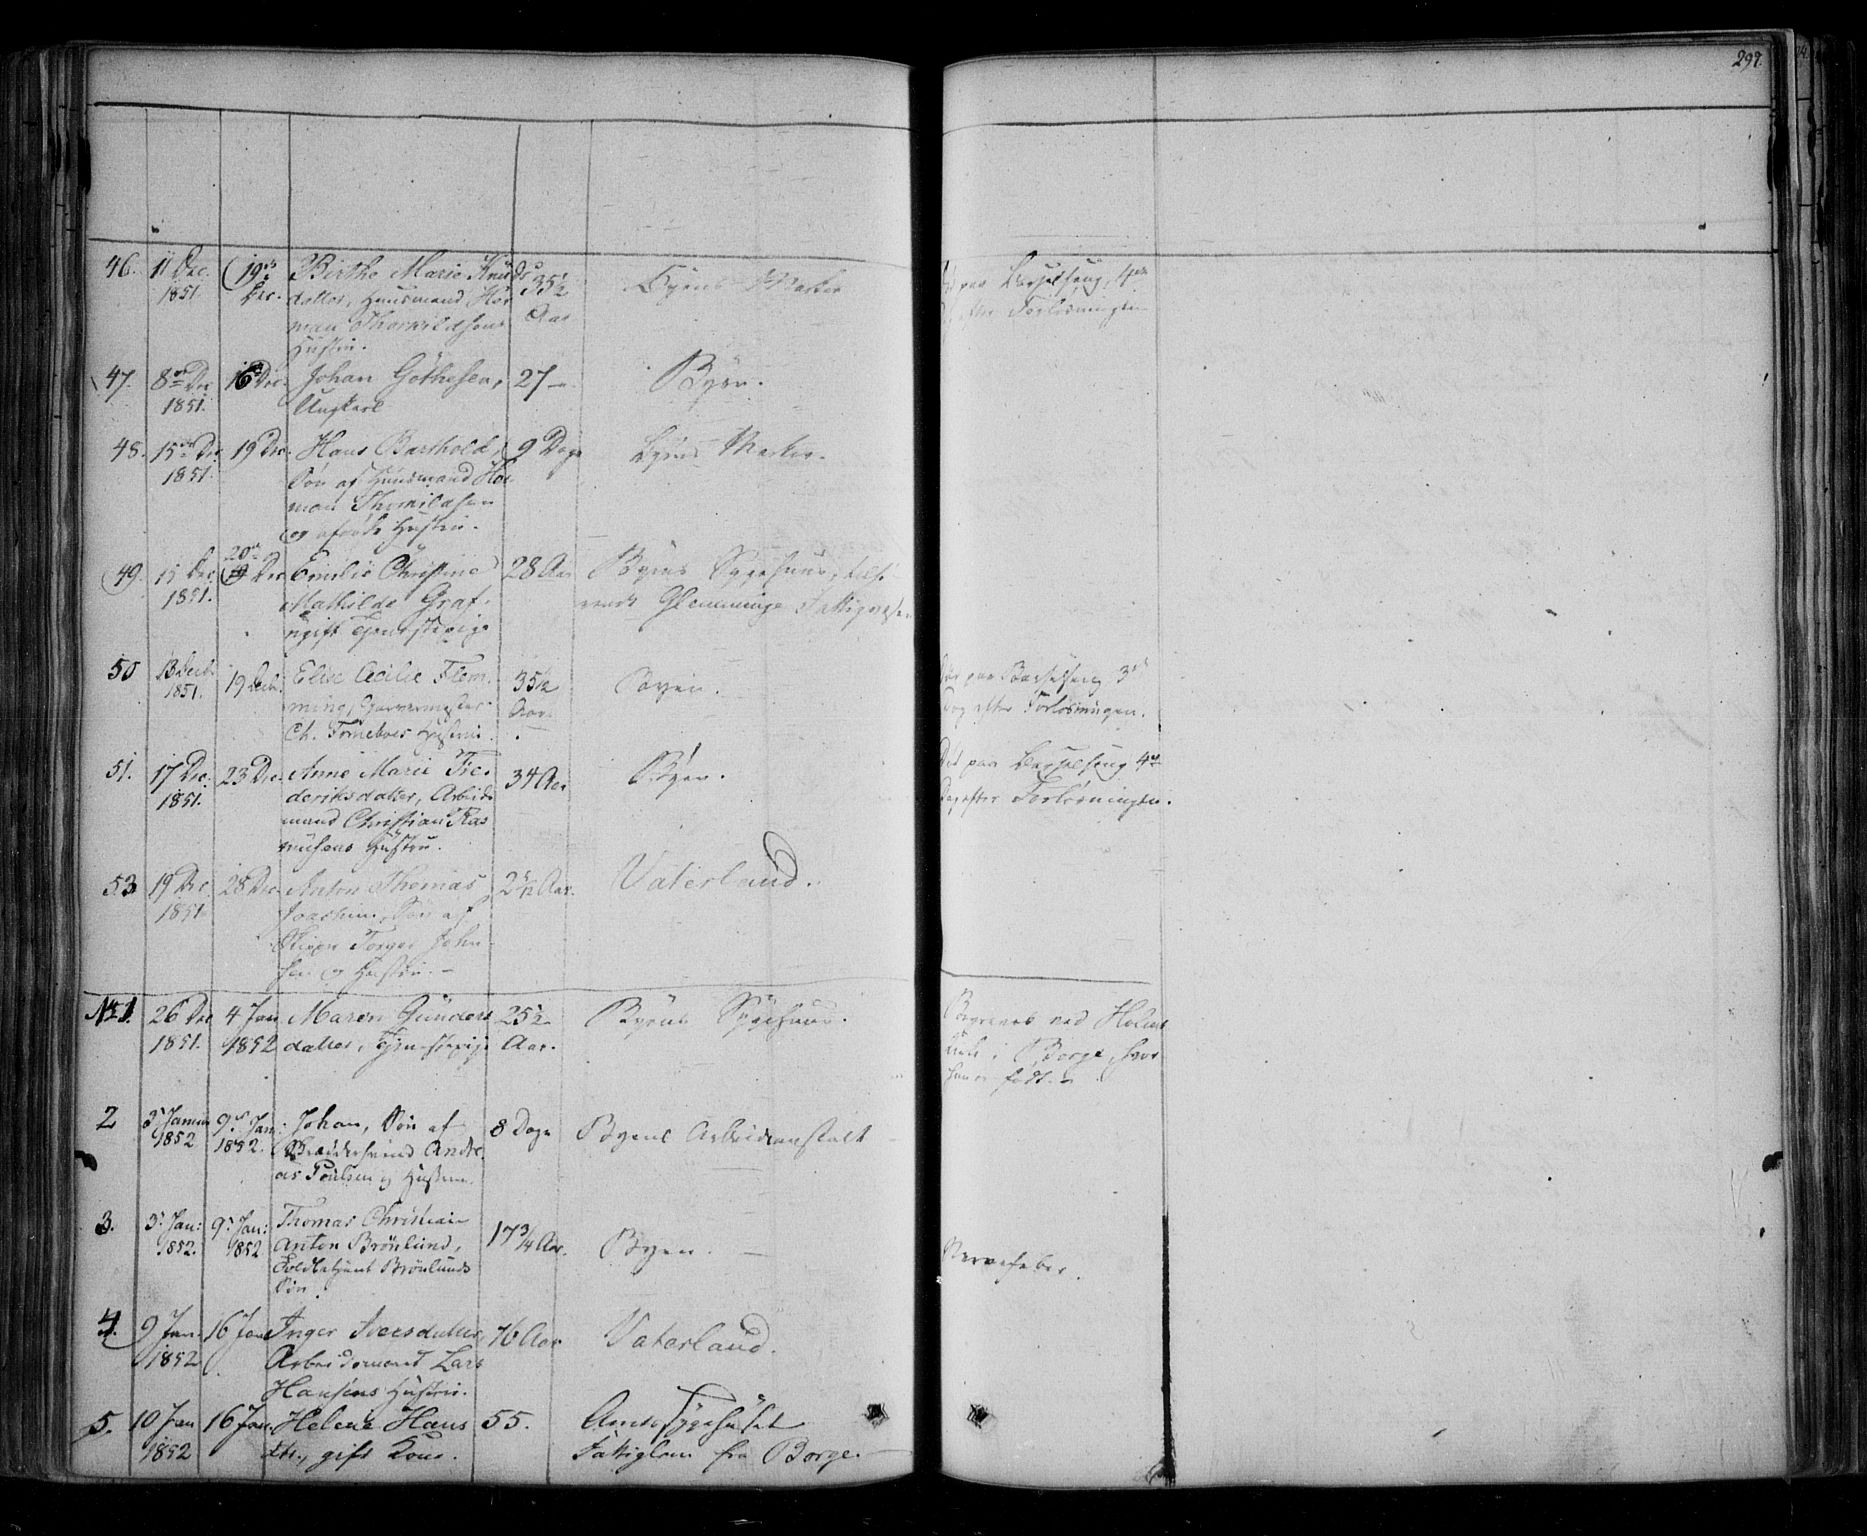 297.
46. 11 Dec. 1851. 19de Dec. Birthe Marie Knuds 35½ Byens Marker Død paa Barselseng, 4de
datter, Huusmand Her Aar efter Forløsningen
man Thorkildsens
Hustru.
47. 8de Dec 1851. 16 Dec. Johan Gøthesen, 27 — Byen.
Ungkarl
48. 15de Dec 1851. 19 Dec. Hans Barthold, 9 Dage Byens Marker.
Søn af Huusmand Her
man Thorkildsen
og Hustru.
49. 15 Dec 1851. 20de Dec Emilie Christine 28 Aar Byens Sygehuus, tilhø
Mathilde Graf, rende Glemminge Fattigvæsen
ugift Tjenestepige
50 13 Decbr. 1851. 19 Decbr. Elise Cecilie Flem 35½ Byen. Død paa Barselseng 3die
ming, Garvermester Aar. Dag efter Forløsningen.
Ch. Torneboes Hustru.
51. 17 Dec. 1851. 23 Dec. Anne Marie Fre 34 Aar Byen. Død paa Barselseng 4de
deriksdatter, Arbeids Dag efter Forløsningen.
mand Christian Ras
musens Hustru.
53 19 Dec 1851 28 Dec. Anton Thomas Aar. Vaterland.
Joachim, Søn af
Torger John
sen og Hustru. —
No 1. 26 Dec 1851. 4 Jan 1852 Maren Gunders 25½ Byens Sygehuus. Begravet ved
datter, Tjenestepige Aar. i Borge, hvor
hun er født.
2 3. Januar 1852 9de Jan. 1852. Johan, Søn af 8 Dage Byens Arbeidsanstalt
Andre
as Poulsen og Hustru.
3. 3. Jan: 1852. 9. Jan: 1852 Thomas Christian 17¾ Aar. Byen. — Nervefeber.
Anton Brønlund,
Toldbetjent Brønlunds
Søn.
4. 9 Jan. 1852 16 Jan Inger Iversdatter, 76 Aar Vaterland.
Arbeidsmand Lars
Hansens Hustru.
5. 10 Jan 1852 16 Jan. Helene Hans 55. Amtssygehuset
dtr., gift Kone. Fattiglem fra Borge. —